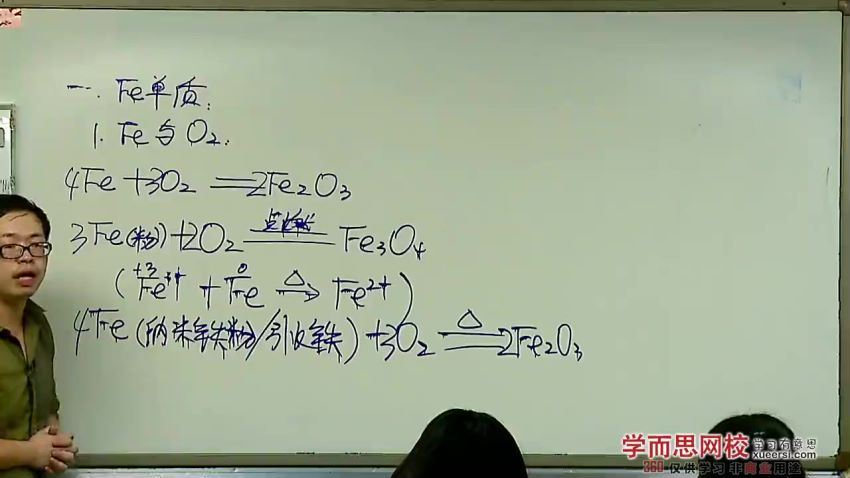 一. Fe单质:
1. Fe与O₂:
4Fe+3O₂══2Fe₂O₃
3Fe(粉)+2O₂ 点燃══ Fe₃O₄
(+3 Fe³⁺ + 0 Fe △→ Fe²⁺)
4Fe(纳米铁粉/引火铁)+3O₂ △══ 2Fe₂O₃
学而思网校 学习有意思
xueersi.com
360 仅供学习 非商业用途